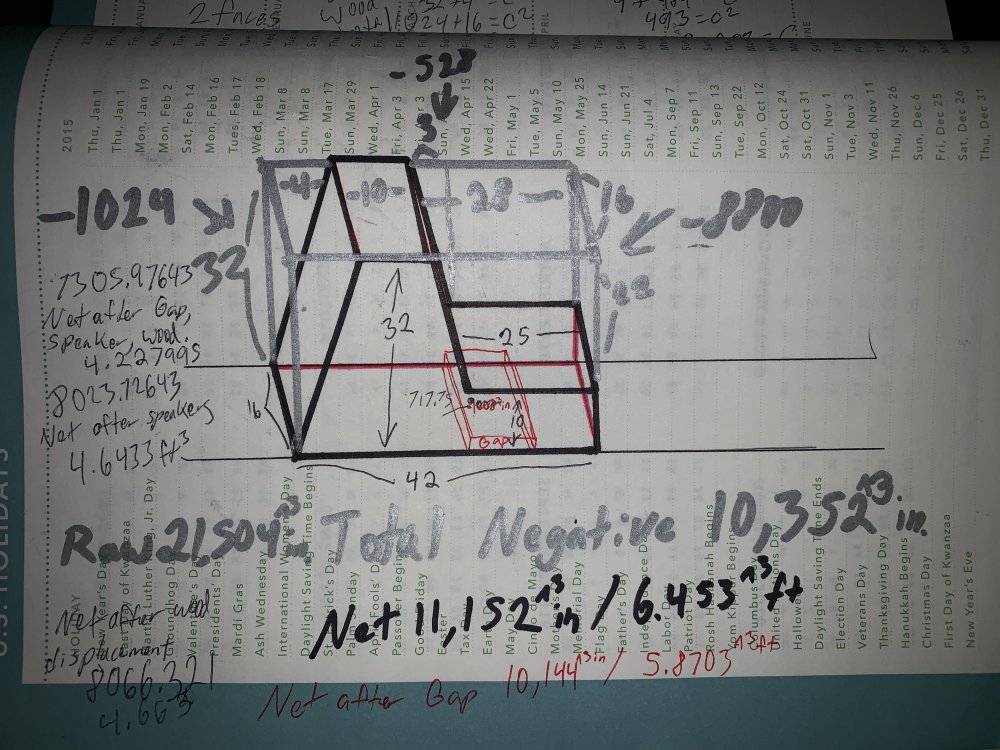 2 faces
wood
1024+16=c²
493=c²
2015
Thu, Jan 1
Thu, Jan 1
Mon, Jan 19
Mon, Feb 2
Sat, Feb 14
Mon, Feb 16
Tues, Feb 17
Wed, Feb 18
Sun, Mar 8
Sun, Mar 8
Tue, Mar 17
Sun, Mar 29
Wed, Apr 1
Fri, Apr 3
Fri, Apr 3
Sun,
Wed, Apr 15
Wed, Apr 22
Fri, May 1
Tue, May 5
Sun, May 10
Mon, May 25
Sun, Jun 14
Sun, Jun 21
Sat, Jul 4
Mon, Sep 7
Fri, Sep 11
Sun, Sep 13
Tue, Sep 22
Mon, Oct 12
Sat, Oct 24
Sat, Oct 31
Sun, Nov 1
Tue, Nov 3
Wed, Nov 11
Thu, Nov 26
Sun, Dec 6
Fri, Dec 25
Sat, Dec 26
Thu, Dec 31
-528
3
-4-
-10-
-28-
16
-1029
-8800
32
22
7305.97643
Net after Gap,
speaker, wood.
4.227995
8023.72643
Net after speakers
4.6433 ft³
32
25
16
717.75
1008 in
10
Gap
42
Raw 21,504 in^3.
Total Negative 10,352^3 in.
Net 11,152^3 in / 6.453^3 ft
Net after Gap 10,144^3 in / 5.8703^3 ft
Net after wood
displacement
8066.321
4.663
U.S. HOLIDAYS
Martin Luther King, Jr. Day
Groundhog Day
Valentine's Day
Presidents Day
Mardi Gras
Ash Wednesday
International Women's Day
Daylight Saving Time Begins
St. Patrick's Day
April Fools' Day
Passover Begins
Good Friday
Easter
Earth Day
May Day
Cinco de Mayo
Mother's Day
Flag Day
Father's Day
Independence Day
Labor Day
Patriot Day
Rosh Hashanah Begins
Yom Kippur Begins
Columbus Day
United Nations Day
Halloween
Daylight Saving Time Ends
Election Day
Veterans Day
Thanksgiving Day
Hanukkah Begins
Christmas Day
First Day of Kwanzaa
New Year's Eve